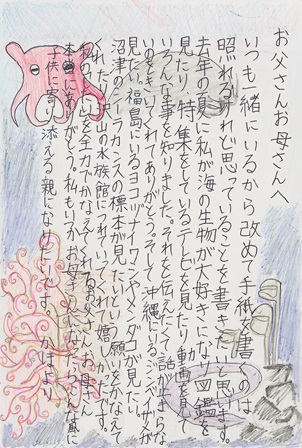 お父さんお母さんへ
いつも一緒にいるから改めて手紙を書くのは
照れるけれど思っていることを書きたいと思います。
去年の夏に私が海の生物が大好きになり図鑑を
見たり、特集をしているテレビを見たり動画を見て
いろんな事を知りました。それを伝えたくて話が止まらな
いのをきいてくれてありがとう。そして沖縄にいるジンベエザメが
見たい。福島にいるヨコヅナイワシやメンダコが見たい。
沼津のシーラカンスの標本が見たいという願いをかなえて
くれた。沢山の水族館につれていってくれて嬉しかったです。
私の 心を全力でかなえてくれるお父さんお母さん
本当にありがとう。私もいつかお母さんになったら 蔵に
子供に寄り添える親になりたいです。かほより